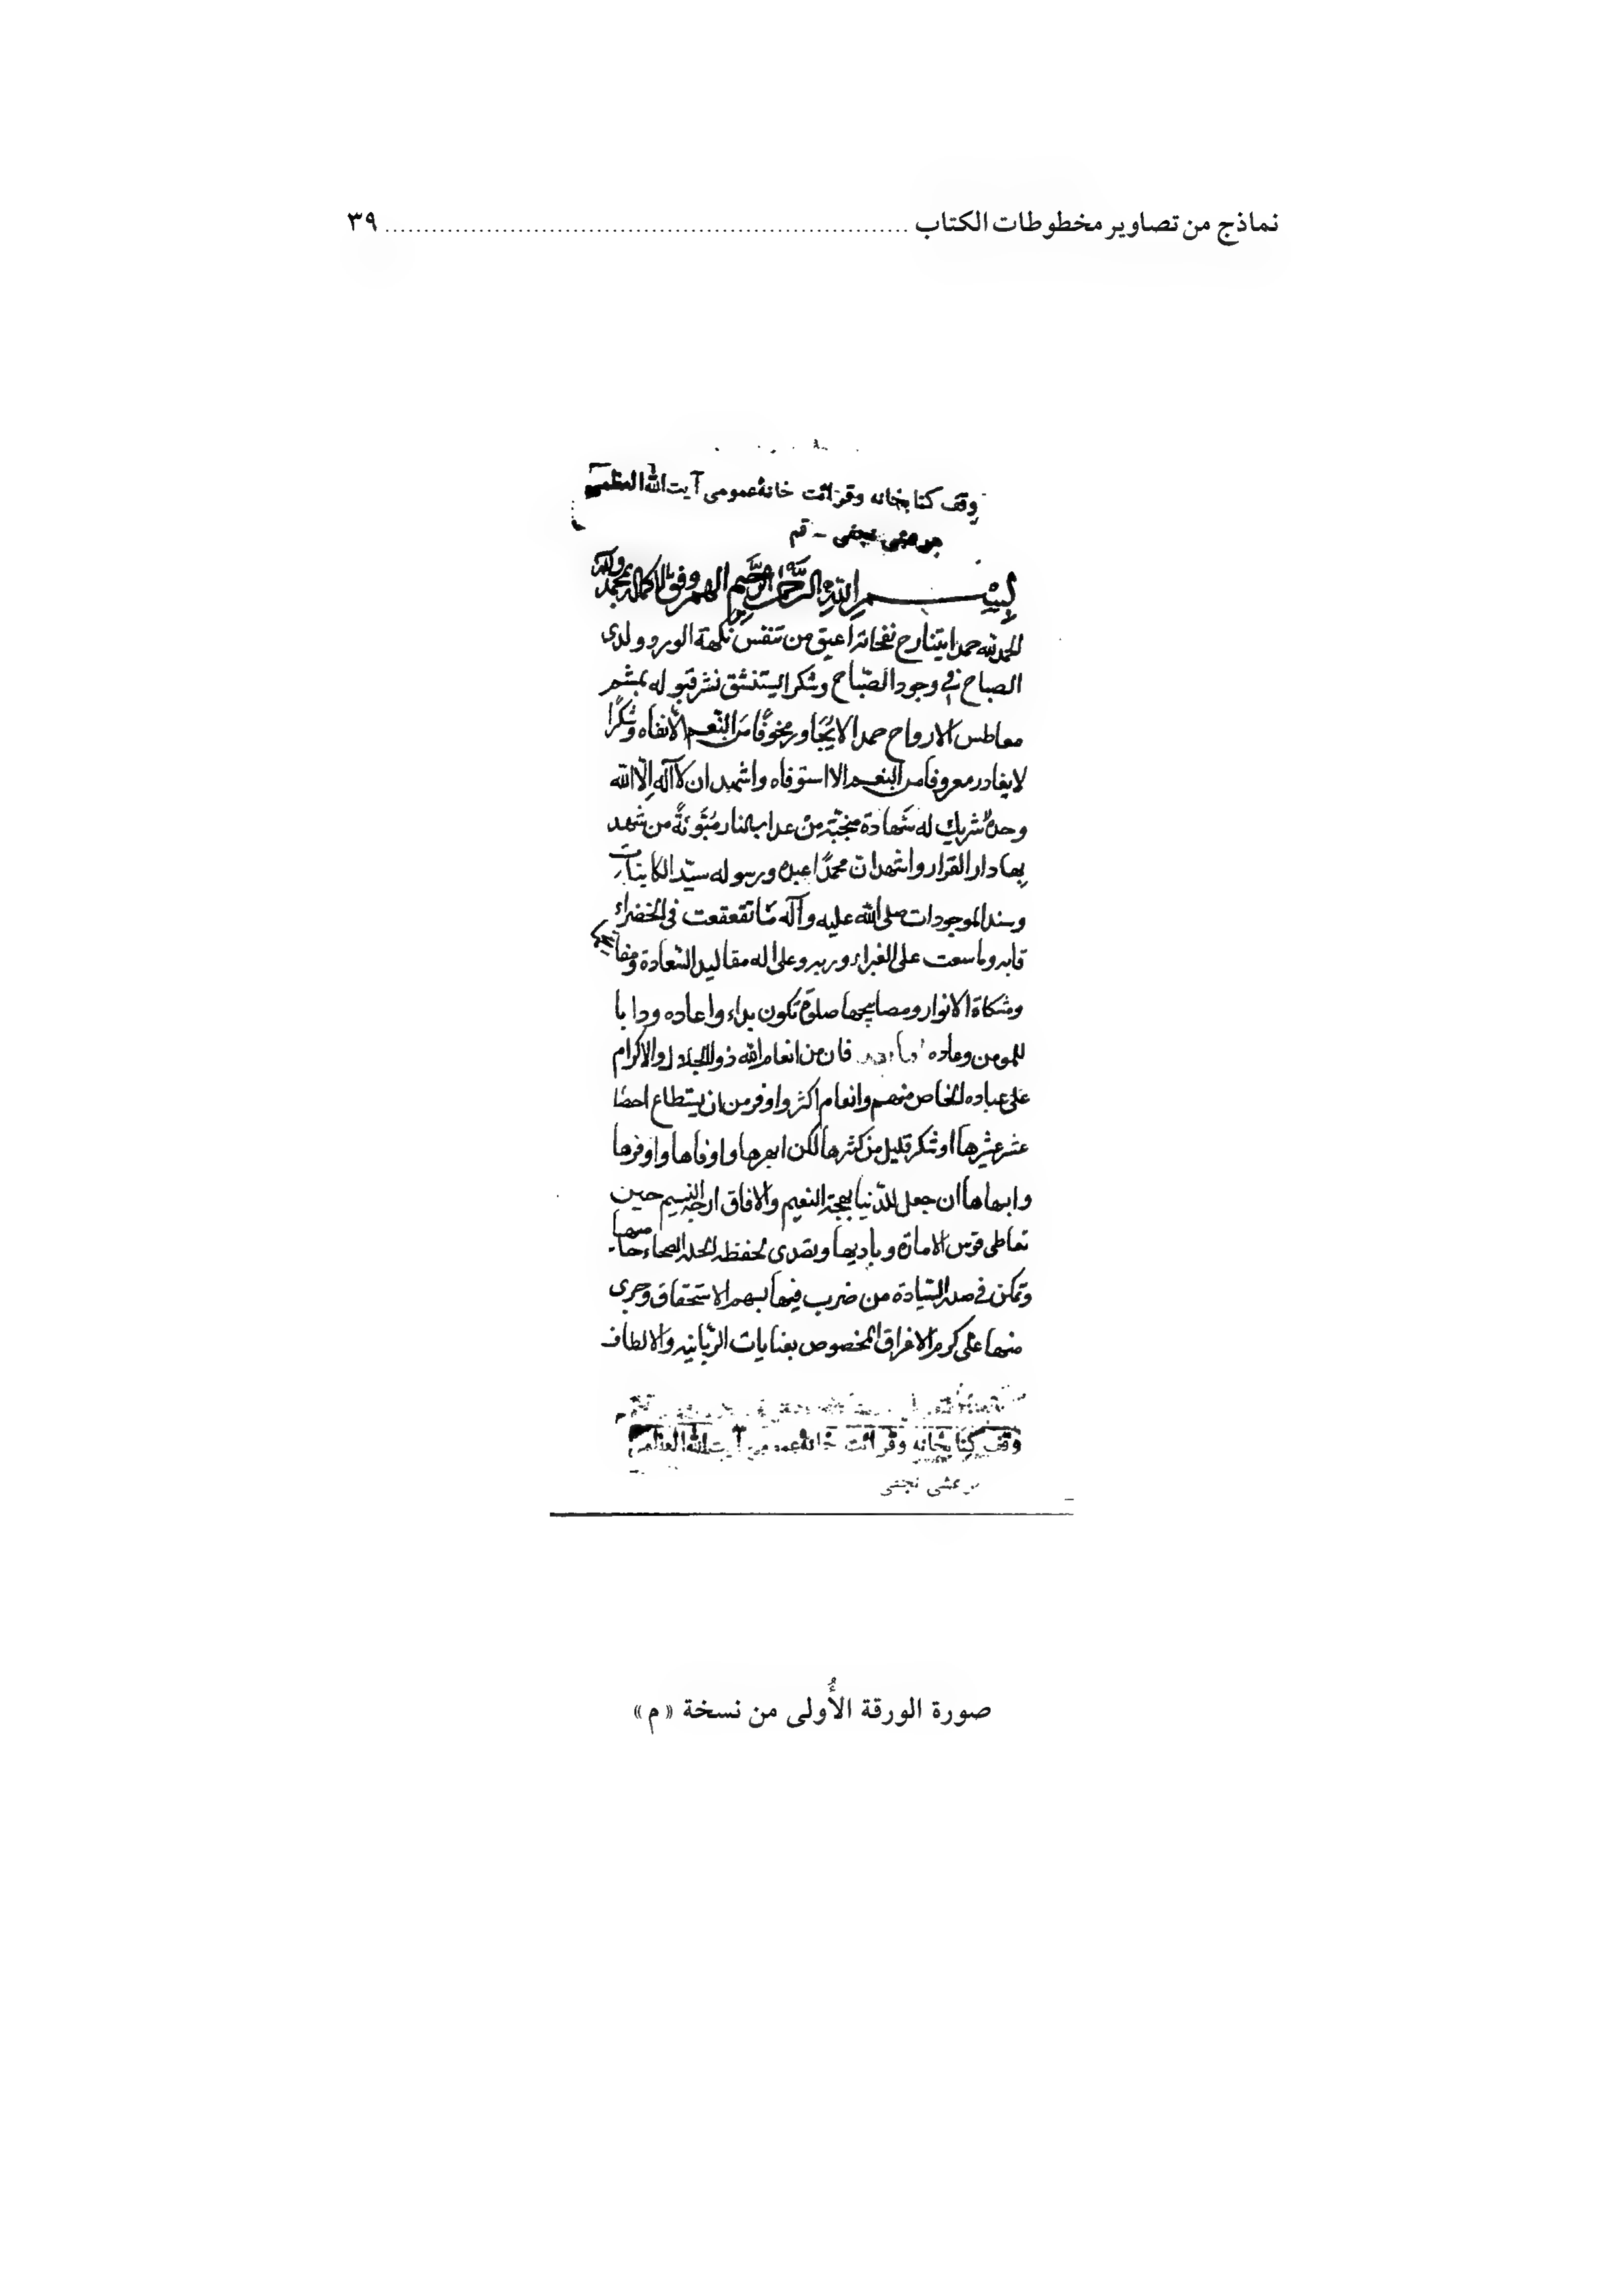 نماذج من تصاوير مخطوطات الكتاب ........................................ ٣٩
وقف كتابخانه وقرائت خانهٔ عمومى آيت الله العظمى
مرعشى نجفى - قم
بسم الله الرحمن الرحيم اللهم وفق لاكماله بمحمد وآله
الحمد لله حمدا يتنارح نفحاته اعبق من تنفس نكهة الورد ولدى
الصباح فى وجود الصّباح وشكرا يستنشق نشر قبوله بمشم
معاطس الارواح حمدا لا يُجاور مخوفًا من النّعم الا نفاه وشُكرًا
لا يغادر معروفا من النعم الا استوفاه واشهد ان لا آله الّا الله
وحده لا شريك له شهادة منجية من عذاب النار مُبَّوئةً من شهد
بها دار القرار واشهد ان محمدًا عبده ورسوله سيّد الكاينات
وسند الموجودات صلى الله عليه وآله ما تقعقعت فى الخضراء
وما سعت على الغبراء وعلى اله مقاليد السّعادة ومفاتيحها
ومشكاة الانوار ومصابيحها صلوة تكون بداء واعاده ودابا
للمومن وعاده فان من انعام الله ذو الجلال والاكرام
على عباده الخاص منهم وانعام اكثر واوفر من ان يستطاع احصا
عشر عشيرها او شكر قليل من كثيرها لكن ابهرها واوفاها واوفرها
وابهاها ان جعل للدّنيا بهجة النعيم والافاق ارجة النسيم حين
تعاطى قوس الامارة وباديها وتصدى لحفظ منها
وتمكن فى صدر السّيادة من ضرب فيها بسهم الاستحقاق وجرى
منها على كرم الاعراق المخصوص بعنايات الرّبانيه والالطاف
وقف كتابخانه وقرائت خانهٔ عمومى آيت الله العظمى
مرعشى نجفى
صورة الورقة الأُولى من نسخة « م »